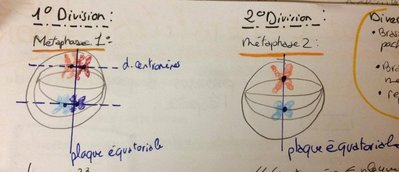 1º Division :
Métaphase 1:
d. centromères
plaque équatoriale
2º Division :
métaphase 2 :
plaque équatoriale
Dive
• Bra
• Bro